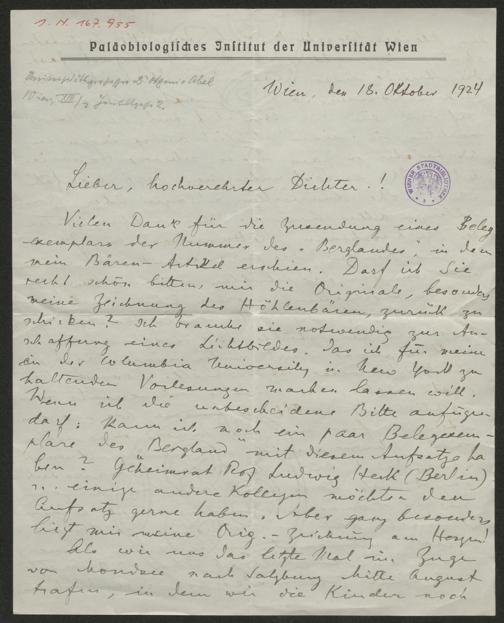 I. N. 167.955
Paläobiologisches Institut der Universität Wien
Universitätsprofessor Dr Othenio Abel
Wien, XIII/
Wien, den 18. Oktober 1924
WIENER STADTBIBLIOTHEK
Lieber, hochverehrter Dichter!
Vielen Dank für die Zusendung eines Beleg
exemplars der Nummer des „Berglandes", in dem
mein Bären-Artikel erschien. Darf ich Sie
recht schön bitten, mir die Originale, besonders
meine Zeichnung des Höhlenbären, zurück zu
schicken? Ich brauche sie notwendig zur An-
schaffung eines Lichtbildes, das ich für meine
an der Columbia University in New York zu
haltenden Vorlesungen machen lassen will.
Wenn ich die unbescheidene Bitte anfügen
darf: kann ich noch ein paar Belegexem-
plare des „Bergland" mit diesem Aufsatze ha
ben? Geheimrat Prof Ludwig Heck (Berlin)
u. einige andere Kollegen möchten den
Aufsatz gerne haben. Aber ganz besonders
liegt mir meine Orig.-Zeichnung am Herzen!
Als wir uns das letzte Mal im Zuge
von Mondsee nach Salzburg Mitte August
trafen, in dem wir die Kinder noch